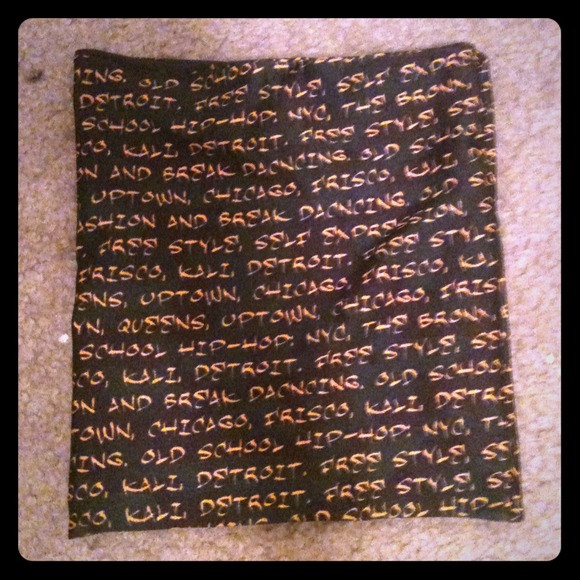 OLD SCHOOL
CING. OLD SCHOOL HIP-HOP. SELF EXPRES
DETROIT. FREE STYLE, SELF
SCHOOL HIP-HOP. NYC, THE BRONX,
CO, KALI, DETROIT. FREE STYLE, SEL
ON AND BREAK DACNCING. OLD SCHOO
UPTOWN, CHICAGO, FRISCO, KALI, DE
ASHION AND BREAK DACNCING. OLD SC
FREE STYLE, SELF EXPRESSION
FRISCO, KALI, DETROIT. FREE STYLE,
ENS, UPTOWN, CHICAGO, FRISCO, KA
YN, QUEENS, UPTOWN, CHICAGO, FRIS
SCHOOL HIP-HOP. NYC, THE BRONX, B
CO, KALI, DETROIT. FREE STYLE, SE
ON AND BREAK DACNCING. OLD SCHOO
OWN, CHICAGO, FRISCO, KALI, DETR
ING. OLD SCHOOL HIP-HOP. NYC, TH
CO, KALI, DETROIT. FREE STYLE, SE
SCO, KALI, DETROIT. FREE STYLE, SE
KING. OLD SCHOOL HIP-H